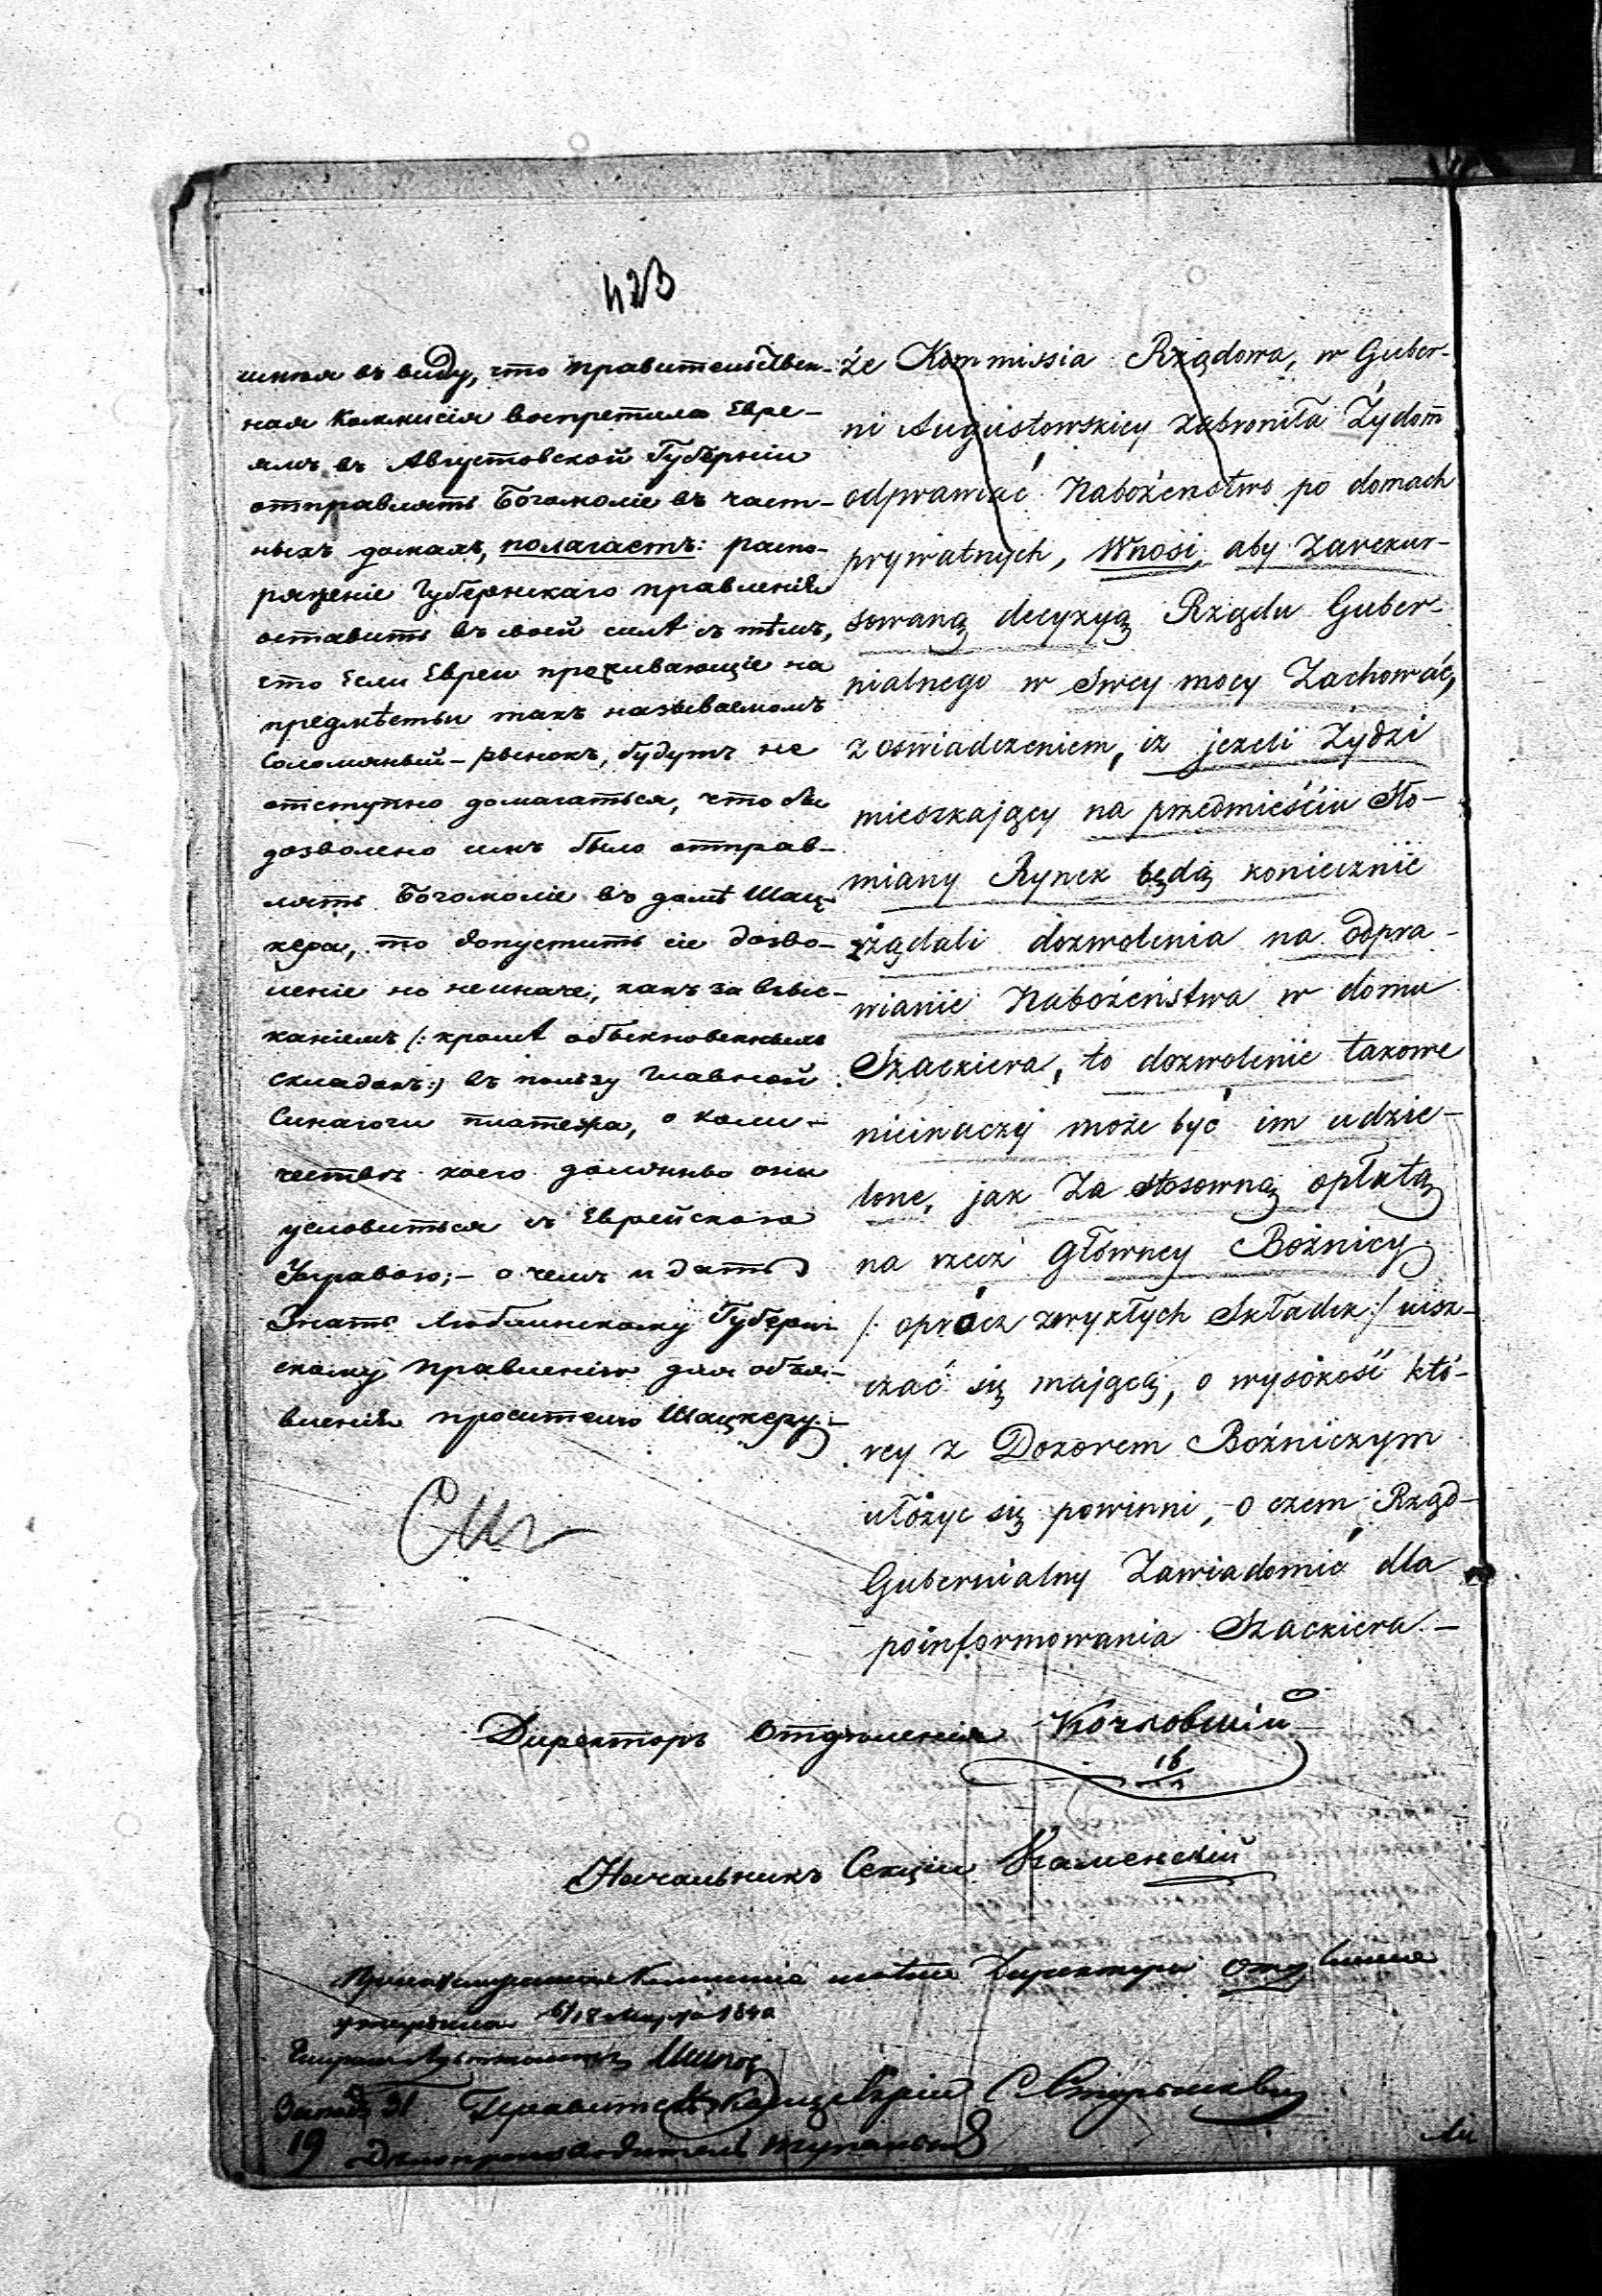 423
имѣя въ виду, что Правительствен-
ная Коммисія воспретила Евре-
ямъ въ Августовской Губерніи
отправлять Богомоліе въ част-
ныхъ домахъ, полагаетъ: распо-
ряженіе Губернскаго Правленія
оставить въ своей силѣ съ тѣмъ,
что Если Евреи проживающіе на
предмѣстьи такъ называемомъ
Соломяный-рынокъ, будутъ не
отступно домагаться, что бы
дозволено имъ было отправ-
лять Богомоліе въ домѣ Шац-
кера, то допустить сіе дозво-
леніе но неиначе, какъ за взыс-
каніемъ /: кромѣ обыкновенныхъ
складокъ :/ въ пользу Главной
Синагоги платежа, о коли-
чествѣ коего должны они
условиться съ Еврейскою
Управою; - о чемъ и дать
Знать Люблинскому Губерн-
скому Правленію для объя-
вленія просителю Шацкеру. -
że Kommissia Rządowa, w Guber-
ni Augustowskiey zabroniła Żydom
odprawiać Nabożeństwo po domach
prywatnych, Wnosi, aby zarekur-
sowaną decyzyą Rządu Guber-
nialnego w swey mocy Zachować,
z oswiadczeniem, iz jezeli Żydzi
mieszkający na przedmieściu Sło-
miany Rynek będą koniecznie
żądali dozwolenia na odpra-
wianie Nabożeństwa w domu
Szackiera, to dozwolenie takowe
nieinaczej może być im udzie-
lone, jak Za stosowną opłatą
na rzecz Główney Bożnicy
/: oprócz zwykłych Składek :/ uisz-
czać się mającą, o wysokość któ-
rey z Dozorem Bożniczym
ułożyc się powinni, - o czem Rząd
Gubernialny Zawiadomić dla
poinformowania Szackiera. -
Директоръ Отдѣленія Козловскій
16
Начальникъ Секціи Каменскій
Правительственная Коммисія мнѣніе Директора Отдѣленія
утвердила 6/18 Марта 1840
Правитель Канцеляріи
19 Дѣлопроизводитель